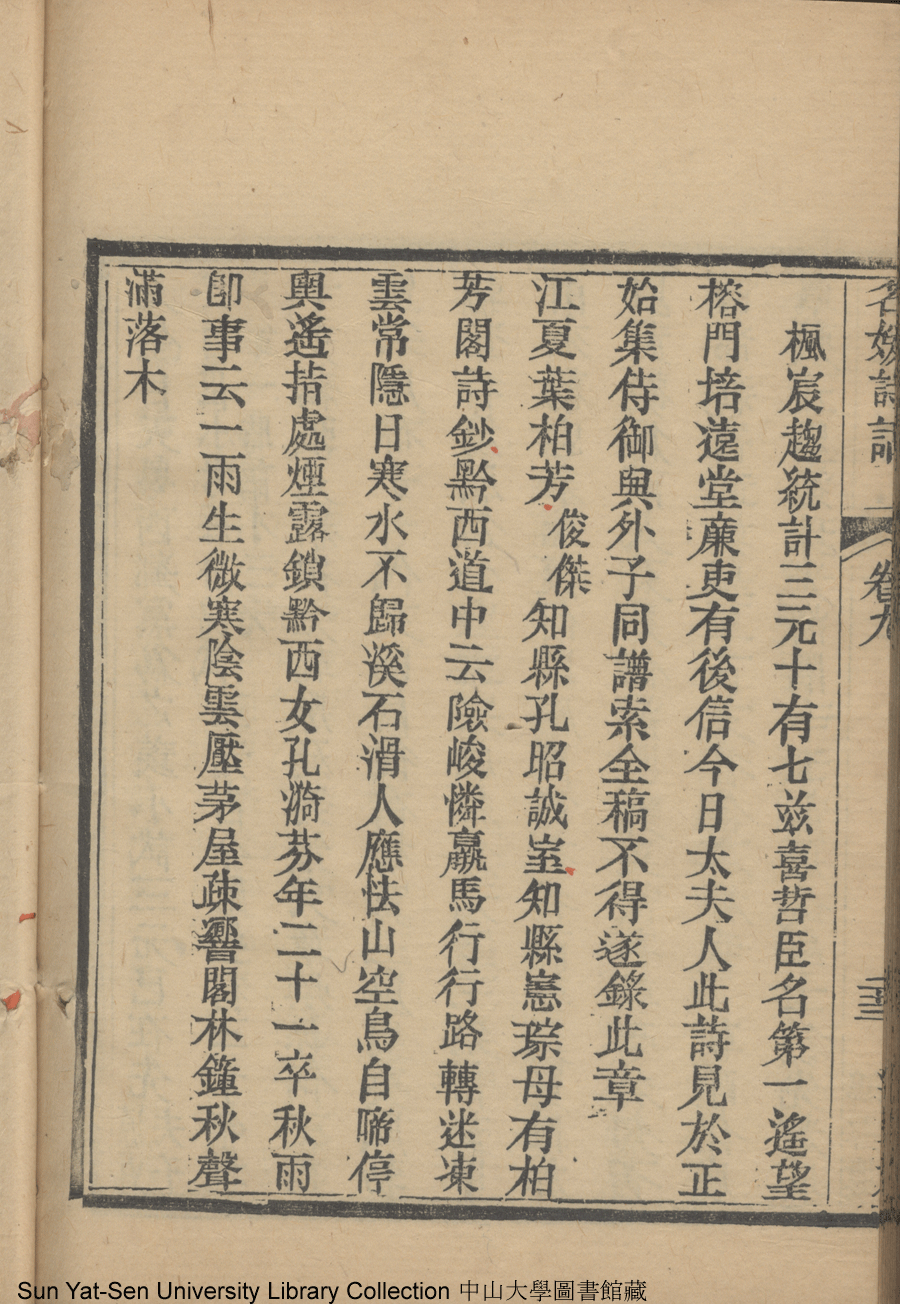 名媛詩話 卷九
楓宸趨統計三元十有七兹喜哲臣名第一遙望
榕門培遠堂廉吏有後信今日太夫人此詩見於正
始集侍御與外子同譜索全稿不得遂錄此章
江夏葉柏芳俊傑知縣孔昭誠室知縣憲琮母有柏
芳閣詩鈔黔西道中云險峻憐羸馬行行路轉迷凍
雲常隱日寒水不歸溪石滑人應怯山空鳥自啼停
輿遙指處煙露鎖黔西女孔漪芬年二十一卒秋雨
卽事云一雨生微寒陰雲壓茅屋疎響閣林鐘秋聲
滿落木
Sun Yat-Sen University Library Collection 中山大學圖書館藏